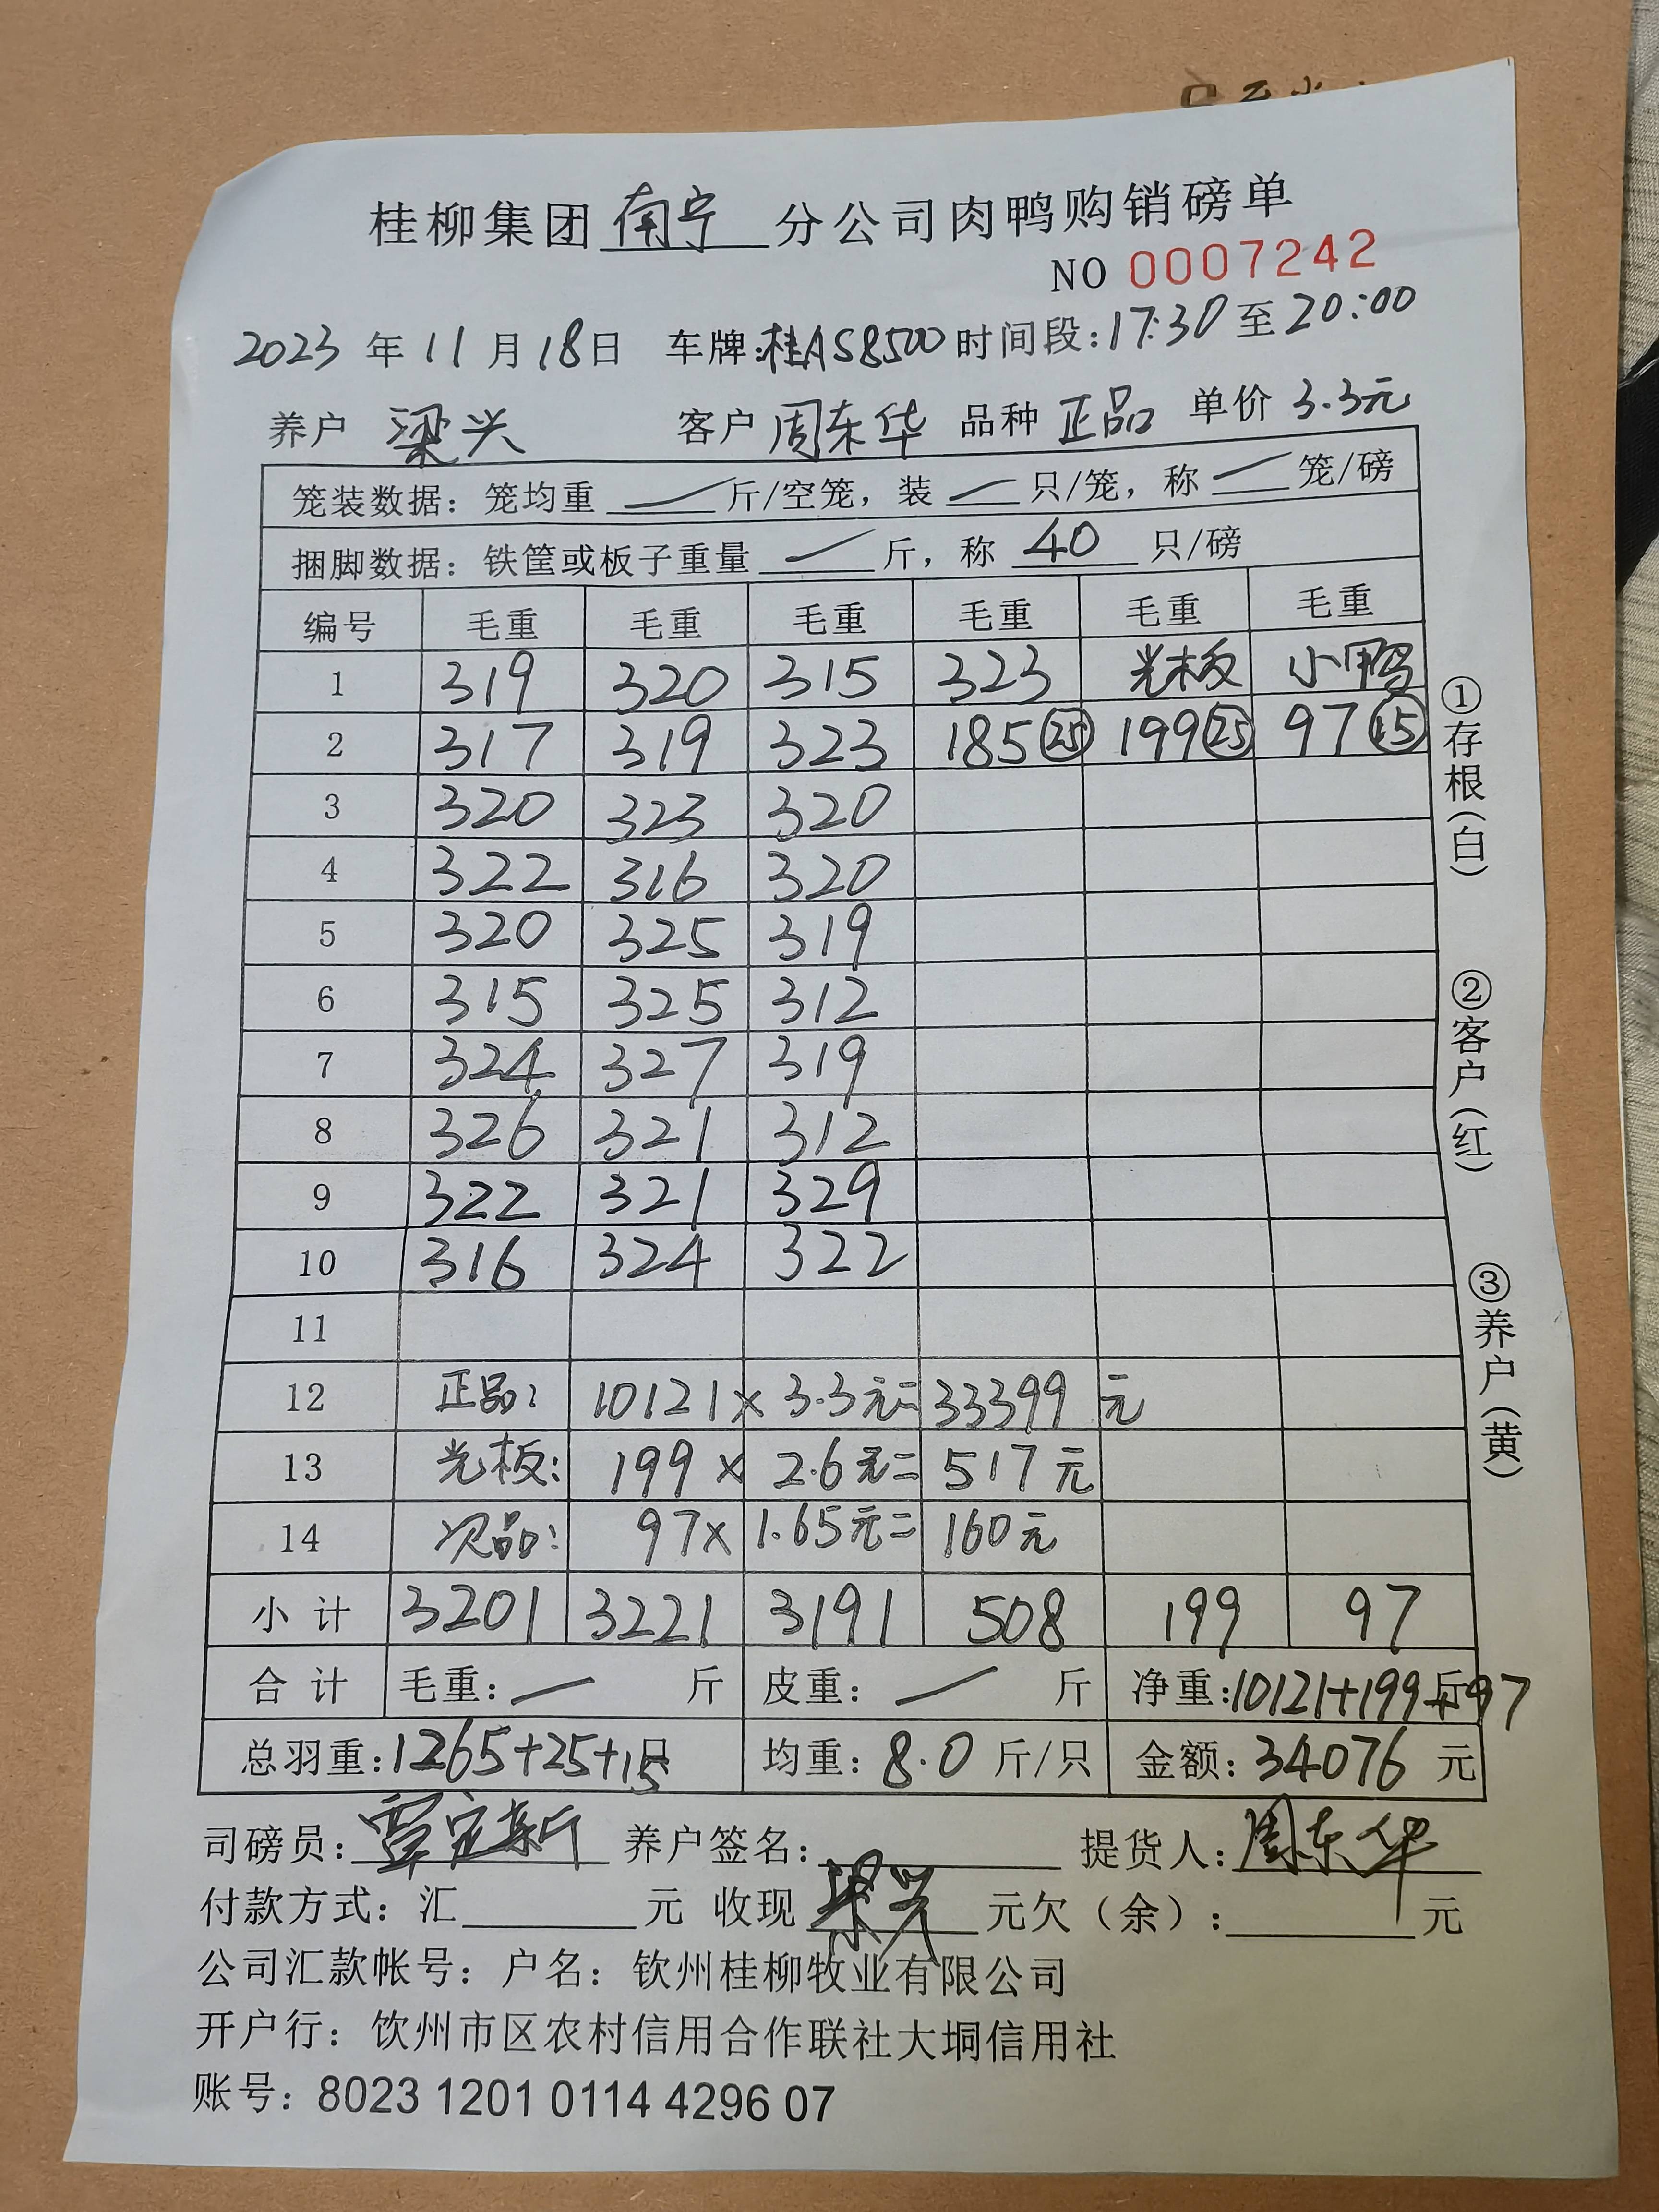 桂柳集团南宁分公司肉鸭购销磅单
NO 0007242
2023年11月18日 车牌:桂AS8500 时间段:17:30至20:00
养户 梁兴 客户 周东华 品种 正品 单价 3.3元
笼装数据：笼均重 — 斤/空笼，装 — 只/笼，称 — 笼/磅
捆脚数据：铁筐或板子重量 — 斤，称 40 只/磅
编号 毛重 毛重 毛重 毛重 毛重 毛重
1 319 320 315 323 光板 小鸭
2 317 319 323 185㉕ 199㉕ 97⑮
3 320 323 320
4 322 316 320
5 320 325 319
6 315 325 312
7 324 327 319
8 326 321 312
9 322 321 329
10 316 324 322
11
12 正品: 10121×3.3元=33399元
13 光板: 199×2.6元=517元
14 次品: 97×1.65元=160元
小计 3201 3221 3191 508 199 97
合计 毛重：— 斤 皮重：— 斤 净重:10121+199+97斤
总羽重:1265+25+15只 均重：8.0斤/只 金额：34076元
司磅员：覃定新 养户签名： 梁兴 提货人:周东华
付款方式：汇 元 收现 元欠（余）: 元
公司汇款帐号：户名：钦州桂柳牧业有限公司
开户行：饮州市区农村信用合作联社大垌信用社
账号：8023 1201 0114 4296 07
①存根（白）
②客户（红）
③养户（黄）